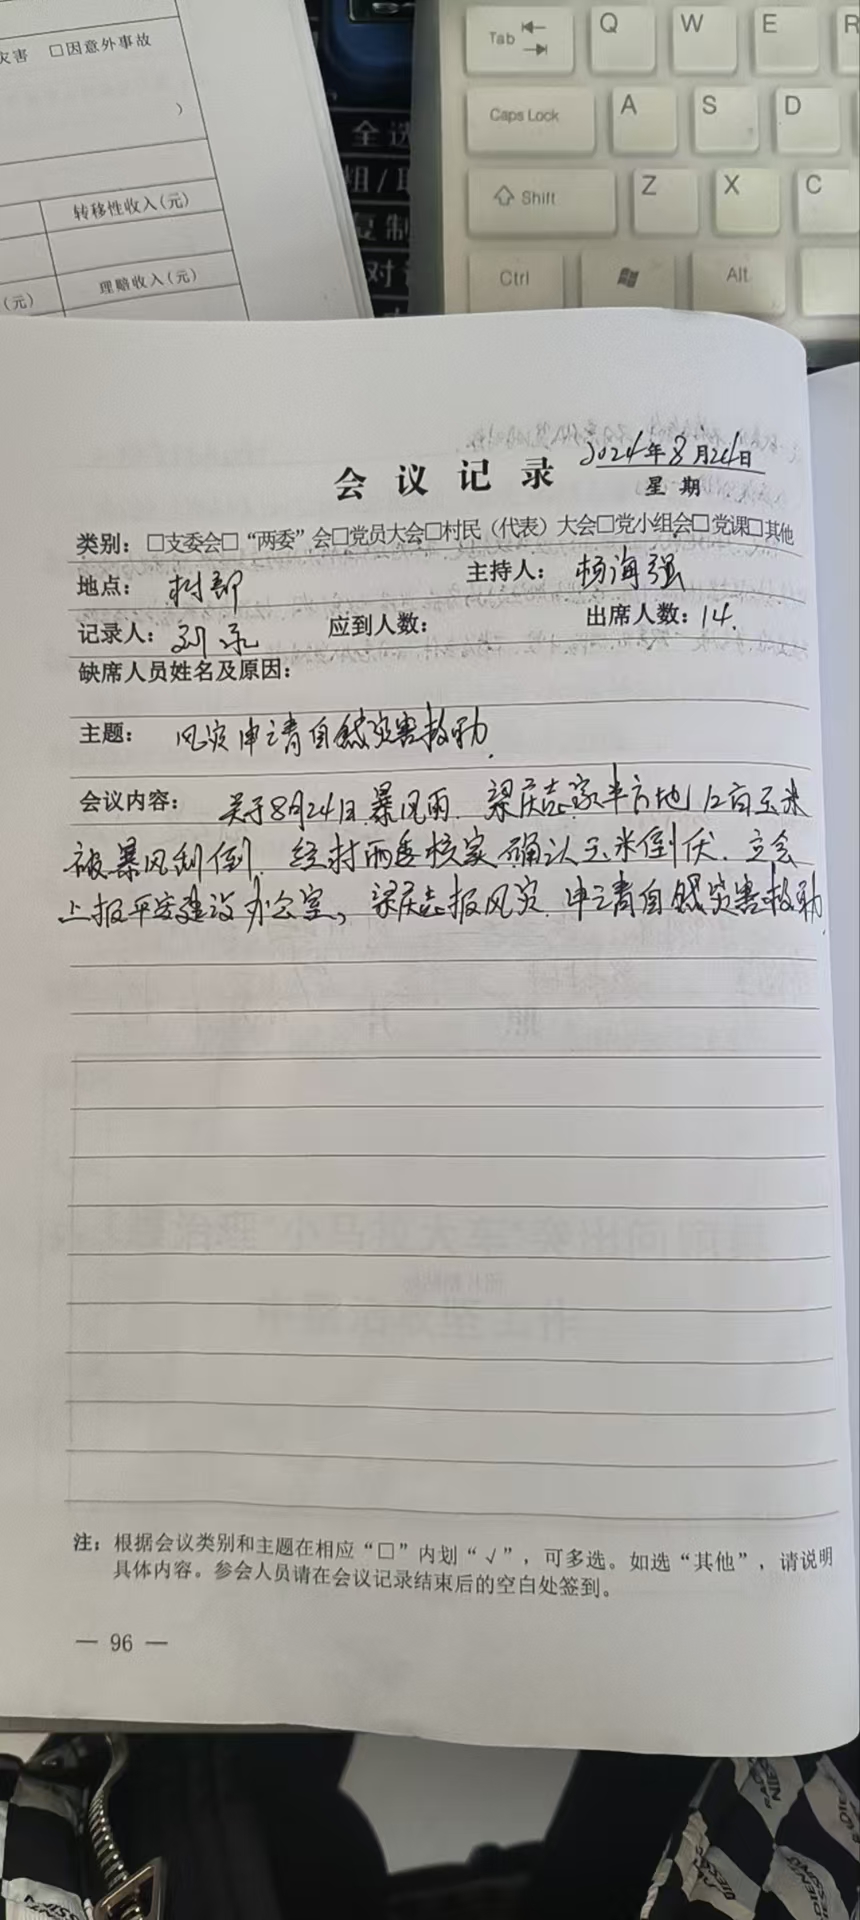 灾害 □因意外事故
)
转移性收入(元)
(元) 理赔收入(元)
全选
复制
Tab Q W E R
Caps Lock A S D
Shift Z X C
Ctrl Alt
会议记录 2024年8月24日
星期
类别：□支委会□“两委”会□党员大会□村民（代表）大会□党小组会□党课□其他
地点： 村部 主持人： 杨海强
记录人： 刘永 应到人数： 出席人数：14.
缺席人员姓名及原因：
主题： 风灾申请自然灾害救助.
会议内容： 关于8月24日暴风雨. 梁庆志家半方地12亩玉米
被暴风刮倒. 经村两委核家确认玉米倒伏. 立会
上报平安建设办公室, 梁庆志报风灾. 申请自然灾害救助.
注：根据会议类别和主题在相应“□”内划“√”，可多选。如选“其他”，请说明
具体内容。参会人员请在会议记录结束后的空白处签到。
— 96 —